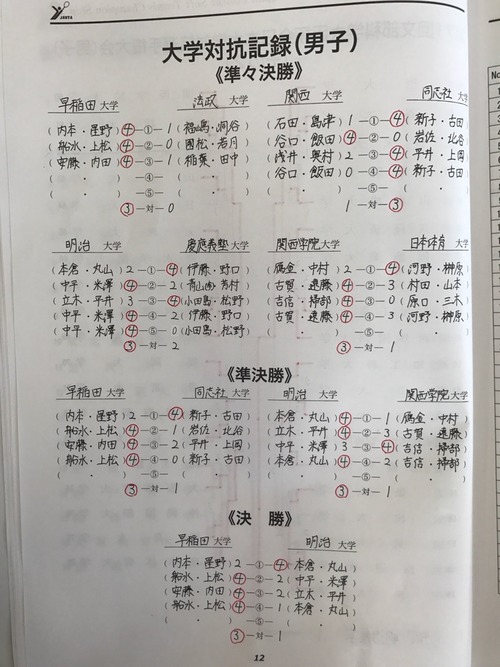 JSSTA
大学対抗記録(男子)
《準々決勝》
早稲田大学 法政大学
(内本・星野)④-①-1(福島・洞谷)
(船水・上松)④-②-0(國松・若月)
(安藤・内田)④-③-1(稲葉・田中)
(・)-④-(・)
(・)-⑤-(・)
③-対-0
関西大学 同志社大学
(石田・島津)1-①-④(新子・古田)
(谷口・飯田)④-②-0(岩佐・北谷)
(浅井・奥村)2-③-④(平井・上岡)
(谷口・飯田)0-④-④(新子・古田)
(・)-⑤-(・)
1-対-③
明治大学 慶應義塾大学
(本倉・丸山)2-①-④(伊藤・野口)
(中平・米澤)④-②-2(青山・芳村)
(立木・平井)3-③-④(小田島・松野)
(中平・米澤)④-④-2(伊藤・野口)
(中平・米澤)④-⑤-0(小田島・松野)
③-対-2
関西学院大学 日本体育大学
(廣金・中村)2-①-④(河野・榊原)
(古賀・遠藤)④-②-3(村田・山本)
(吉信・掃部)④-③-0(原口・三木)
(古賀・遠藤)④-④-3(河野・榊原)
(・)-⑤-(・)
③-対-1
《準決勝》
早稲田大学 同志社大学
(内本・星野)2-①-④(新子・古田)
(船水・上松)④-②-1(岩佐・北谷)
(安藤・内田)④-③-2(平井・上岡)
(船水・上松)④-④-0(新子・古田)
(・)-⑤-(・)
③-対-1
明治大学 関西学院大学
(本倉・丸山)④-①-1(廣金・中村)
(立木・平井)④-②-3(古賀・遠藤)
(中平・米澤)3-③-④(吉信・掃部)
(本倉・丸山)④-④-2(吉信・掃部)
(・)-⑤-(・)
③-対-1
《決 勝》
早稲田大学 明治大学
(内本・星野)2-①-④(本倉・丸山)
(船水・上松)④-②-2(中平・米澤)
(安藤・内田)④-③-2(立木・平井)
(船水・上松)④-④-1(本倉・丸山)
(・)-⑤-(・)
③-対-1
12
No